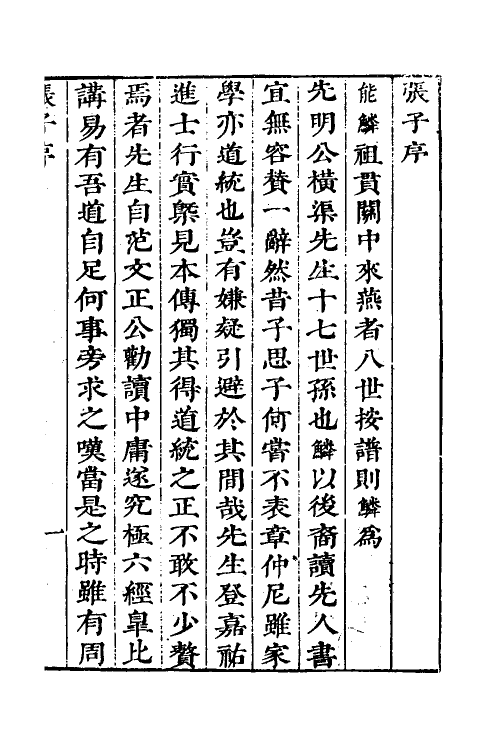 張子序
能鱗祖貫關中來燕者八世按譜則鱗爲
先明公橫渠先生十七世孫也鱗以後裔讀先人書
宜無容贊一辭然昔子思子何嘗不表章仲尼雖家
學亦道統也豈有嫌疑引避於其間哉先生登嘉祐
進士行實槩見本傳獨其得道統之正不敢不少贅
焉者先生自范文正公勸讀中庸遂究極六經臯比
講易有吾道自足何事旁求之嘆當是之時雖有周
張子序
一